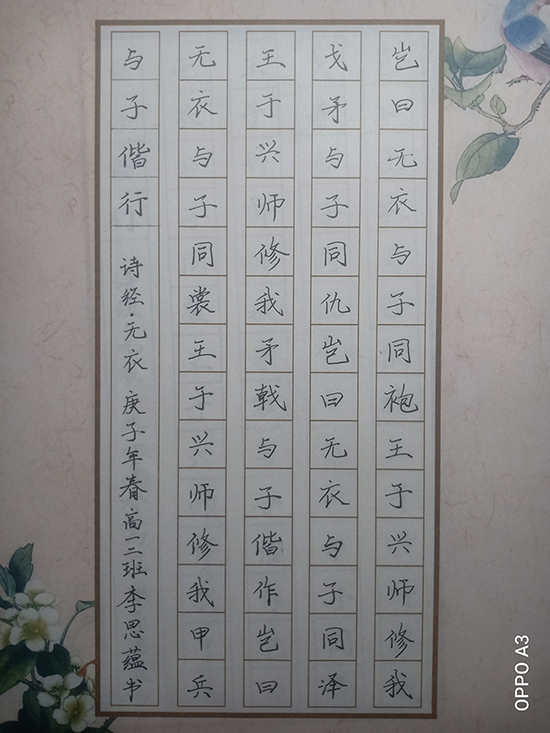 岂曰无衣与子同袍王于兴师修我
戈矛与子同仇岂曰无衣与子同泽
王于兴师修我矛戟与子偕作岂曰
无衣与子同裳王于兴师修我甲兵
与子偕行 诗经·无衣 庚子年春高一二班李思蕴书
OPPO A3